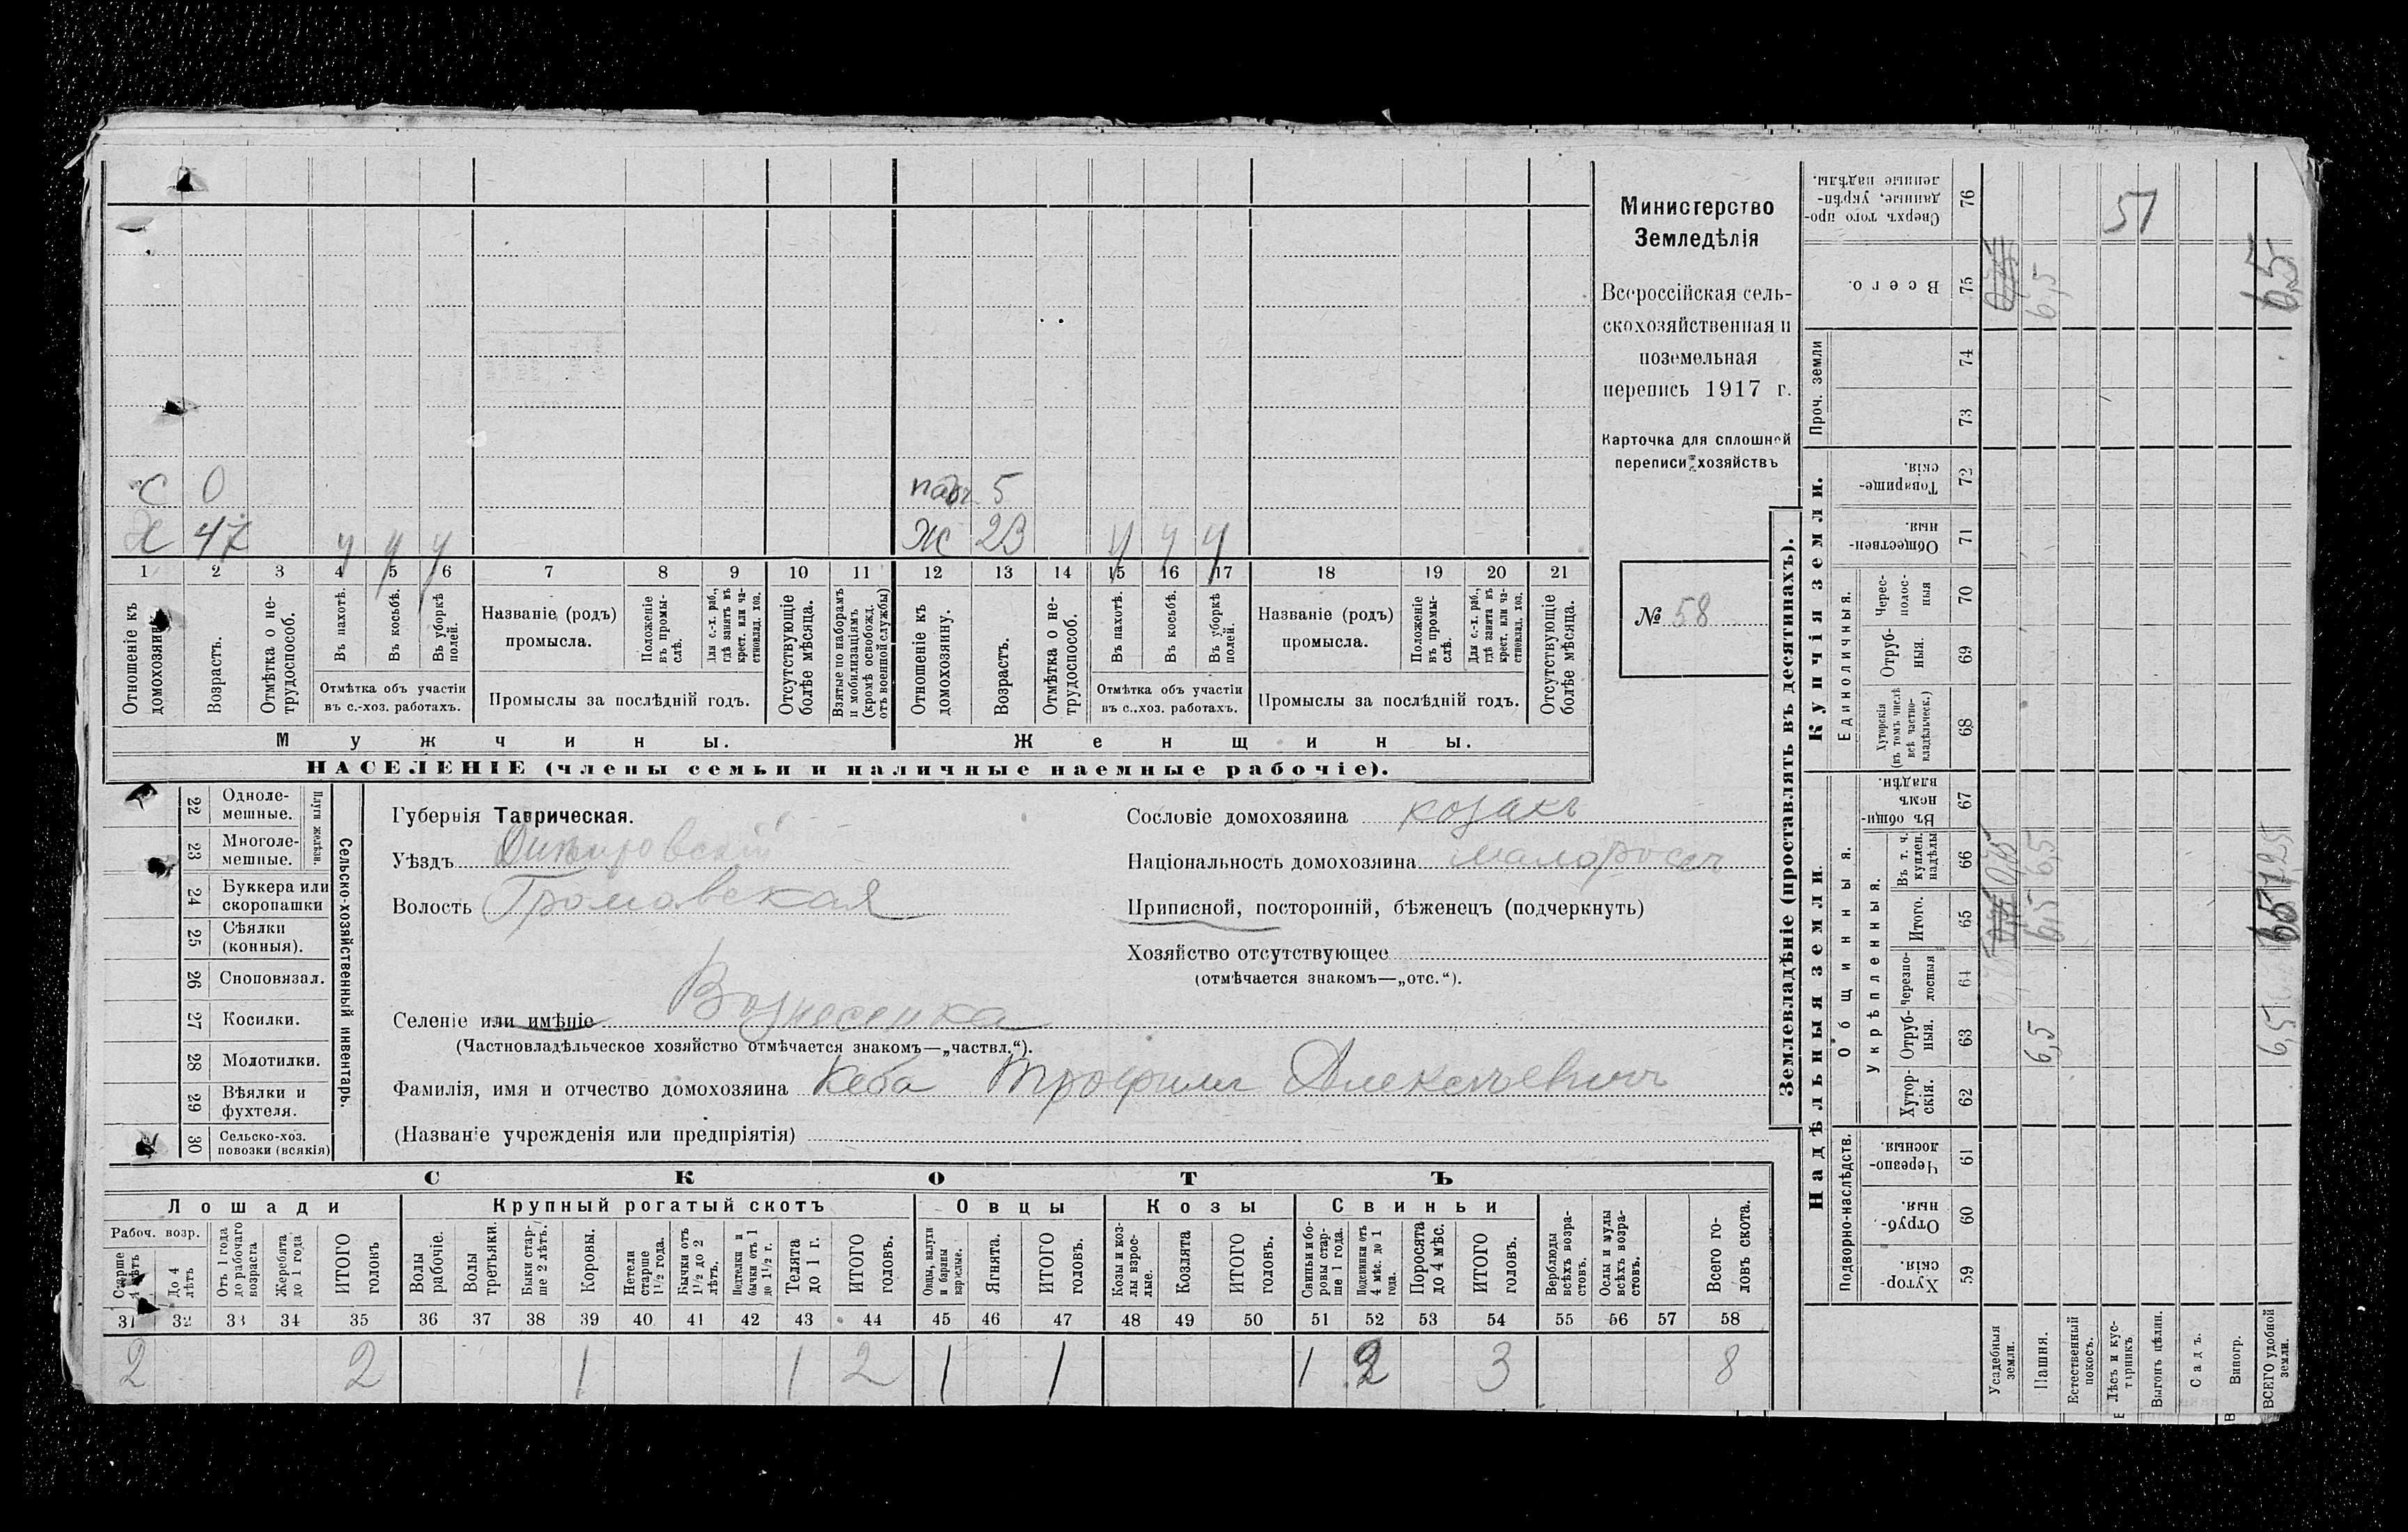 Министерство
Земледѣлія
Всероссійская сель-
скохозяйственная и
поземельная
перепись 1917 г.
Карточка для сплошной
переписи хозяйствъ
№ 58
С 0
Х 47 у у у
пад. 5
Ж 23 у у у
1 2 3 4 5 6 7 8 9 10 11 12 13 14 15 16 17 18 19 20 21
Отношеніе къ
домохозяину.
Возрастъ.
Отмѣтка о не-
трудоспособ.
Въ пахотѣ.
Въ косьбѣ.
Въ уборкѣ
полей.
Отмѣтка объ участіи
въ с.-хоз. работахъ.
Названіе (родъ)
промысла.
Положеніе
въ промы-
слѣ.
Для с.-х. раб.,
гдѣ занятъ въ
крест. или ча-
стновлад. хоз.
Промыслы за послѣдній годъ.
Отсутствующіе
болѣе мѣсяца.
Взятые по наборамъ
и мобилизаціямъ
(кромѣ освобожд.
отъ военной службы)
Отношеніе къ
домохозяину.
Возрастъ.
Отмѣтка о не-
трудоспособ.
Въ пахотѣ.
Въ косьбѣ.
Въ уборкѣ
полей.
Отмѣтка объ участіи
въ с..хоз. работахъ.
Названіе (родъ)
промысла.
Положеніе
въ промы-
слѣ.
Для с.-х. раб.,
гдѣ занята въ
крест. или ча-
стновлад. хоз.
Промыслы за послѣдній годъ.
Отсутствующіе
болѣе мѣсяца.
Мужчины.
Женщины.
НАСЕЛЕНІЕ (члены семьи и наличные наемные рабочіе).
22 Одноле-
мешные.
23 Многоле-
мешные.
Плуги желѣзн.
24 Буккера или
скоропашки
25 Сѣялки
(конныя).
26 Сноповязал.
27 Косилки.
28 Молотилки.
29 Вѣялки и
фухтеля.
30 Сельско-хоз.
повозки (всякія)
Сельско-хозяйственный инвентарь.
Губернія Таврическая.
Уѣздъ Днѣпровскій
Волость Громовская
Селеніе или имѣніе Вознесенка
(Частновладѣльческое хозяйство отмѣчается знакомъ—„частвл.“).
Фамилія, имя и отчество домохозяина Кеба Трофимъ Алексѣевичъ
(Названіе учрежденія или предпріятія)
Сословіе домохозяина козакъ
Національность домохозяина малороссъ
Приписной, посторонній, бѣженецъ (подчеркнуть)
Хозяйство отсутствующее
(отмѣчается знакомъ—„отс.“).
СКОТЪ
Лошади
Крупный рогатый скотъ
Овцы
Козы
Свиньи
Рабоч. возр.
Старше
4 лѣтъ
До 4
лѣтъ
Отъ 1 года
до рабочаго
возраста
Жеребята
до 1 года
ИТОГО
головъ
Волы
рабочіе.
Волы
третьяки.
Быки стар-
ше 2 лѣтъ.
Коровы.
Нетели
старше
1½ года.
Бычки отъ
1½ до 2
лѣтъ.
Подтелки и
бычки отъ 1
до 1½ г.
Телята
до 1 г.
ИТОГО
головъ.
Овцы, валухи
и бараны
взрослые.
Ягнята.
ИТОГО
головъ.
Козы и коз-
лы взрос-
лые.
Козлята
ИТОГО
головъ.
Свиньи и бо-
ровы стар-
ше 1 года.
Подсвинки отъ
4 мѣс. до 1
года.
Поросята
до 4 мѣс.
ИТОГО
головъ.
Верблюды
всѣхъ возра-
стовъ.
Ослы и мулы
всѣхъ возра-
стовъ.
Всего го-
ловъ скота.
31 32 33 34 35 36 37 38 39 40 41 42 43 44 45 46 47 48 49 50 51 52 53 54 55 56 57 58
2 2 1 1 2 1 1 1 2 3 8
Землевладѣніе (проставлять въ десятинахъ).
Надѣльныя земли.
Купчія земли.
Подворно-наслѣдств.
Общинныя.
Укрѣпленныя.
Единоличныя.
Проч. земли
Хутор-
скія. 59
Отруб-
ныя. 60
Черезпо-
лосныя. 61
Хутор-
скія. 62
Отруб-
ныя. 63
Черезпо-
лосныя 64
Итого. 65
Въ т. ч.
куплен.
надѣлы 66
Въ общи-
номъ
владѣн. 67
Хуторскія
(въ томъ числѣ
всѣ частно-
владѣльческ.) 68
Отруб-
ныя. 69
Черес-
полос-
ныя 70
Обществен-
ныя. 71
Товарище-
скія. 72
73
74
Всего. 75
Сверхъ того про-
данные, укрѣп-
ленные надѣлы. 76
Усадебныя
земли.
Пашня. 6,5 6,5 6,5 6,5
Естественный
покосъ.
Лѣсъ и кус-
тарникъ 51
Выгонъ цѣлин.
Садъ.
Виногр.
ВСЕГО удобной
земли. 6,5 6,5 6,5